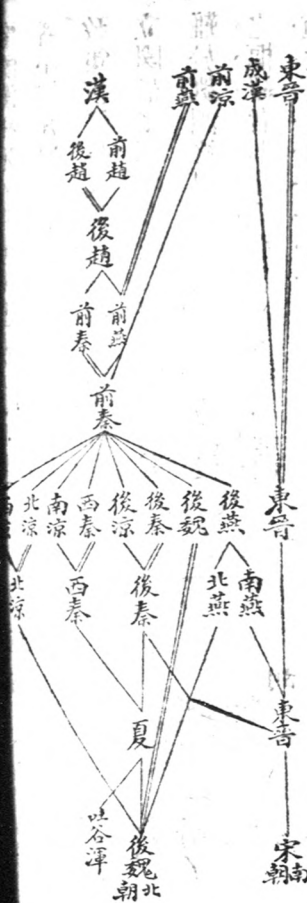 東晉
成漢
前涼
前燕
漢
前趙
後趙
後趙
前燕
前秦
前秦
東晉
後燕
後魏
後秦
後涼
西秦
南涼
北涼
南燕
北燕
後秦
西秦
北涼
東晉
夏
宋南朝
後魏北朝
吐谷渾